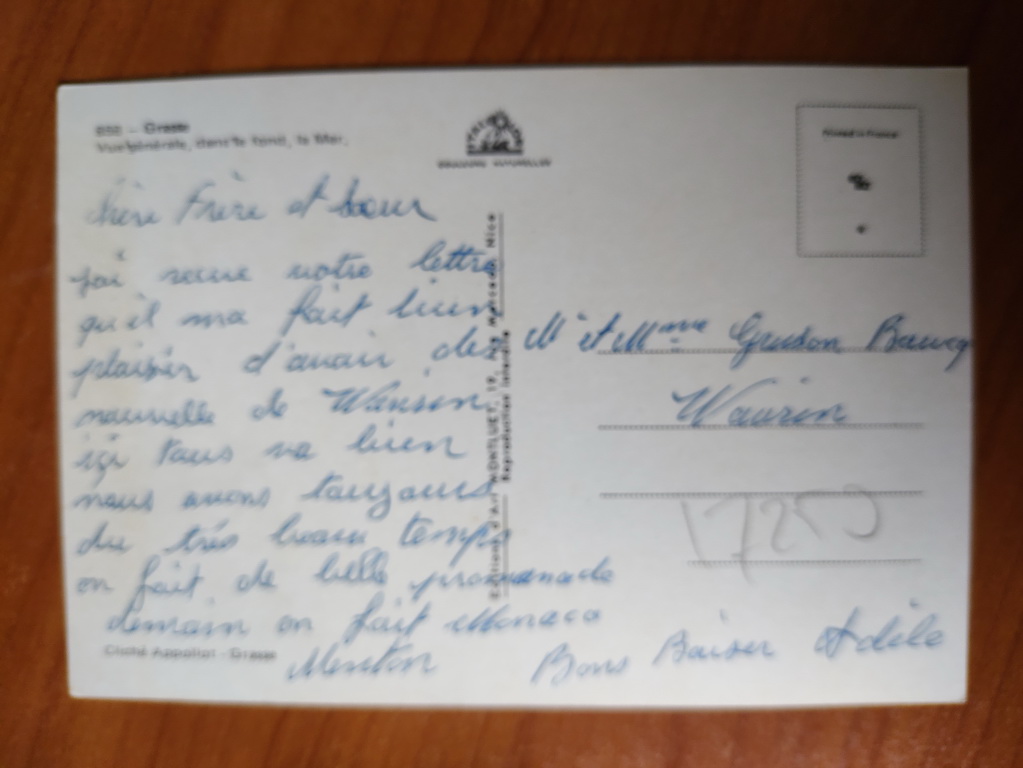 - Grasse
Vue générale, dans le fond, la Mer.
COULEURS NATURELLES
Printed in France
Chère Frère et Soeur
j'ai recue votre lettre
qu'il ma fait bien
plaisir d'avoir des
nouvelle de
içi tous va bien
nous avons toujours
du très beau temps
on fait de belle promenade
demain on fait Monaco
Menton
Bons Baiser Adèle
Cliché Appollot - Grasse
Editions d'Art MONTLUET, Nice
Reproduction interdite
Mr et Mme
Wavrin
17250